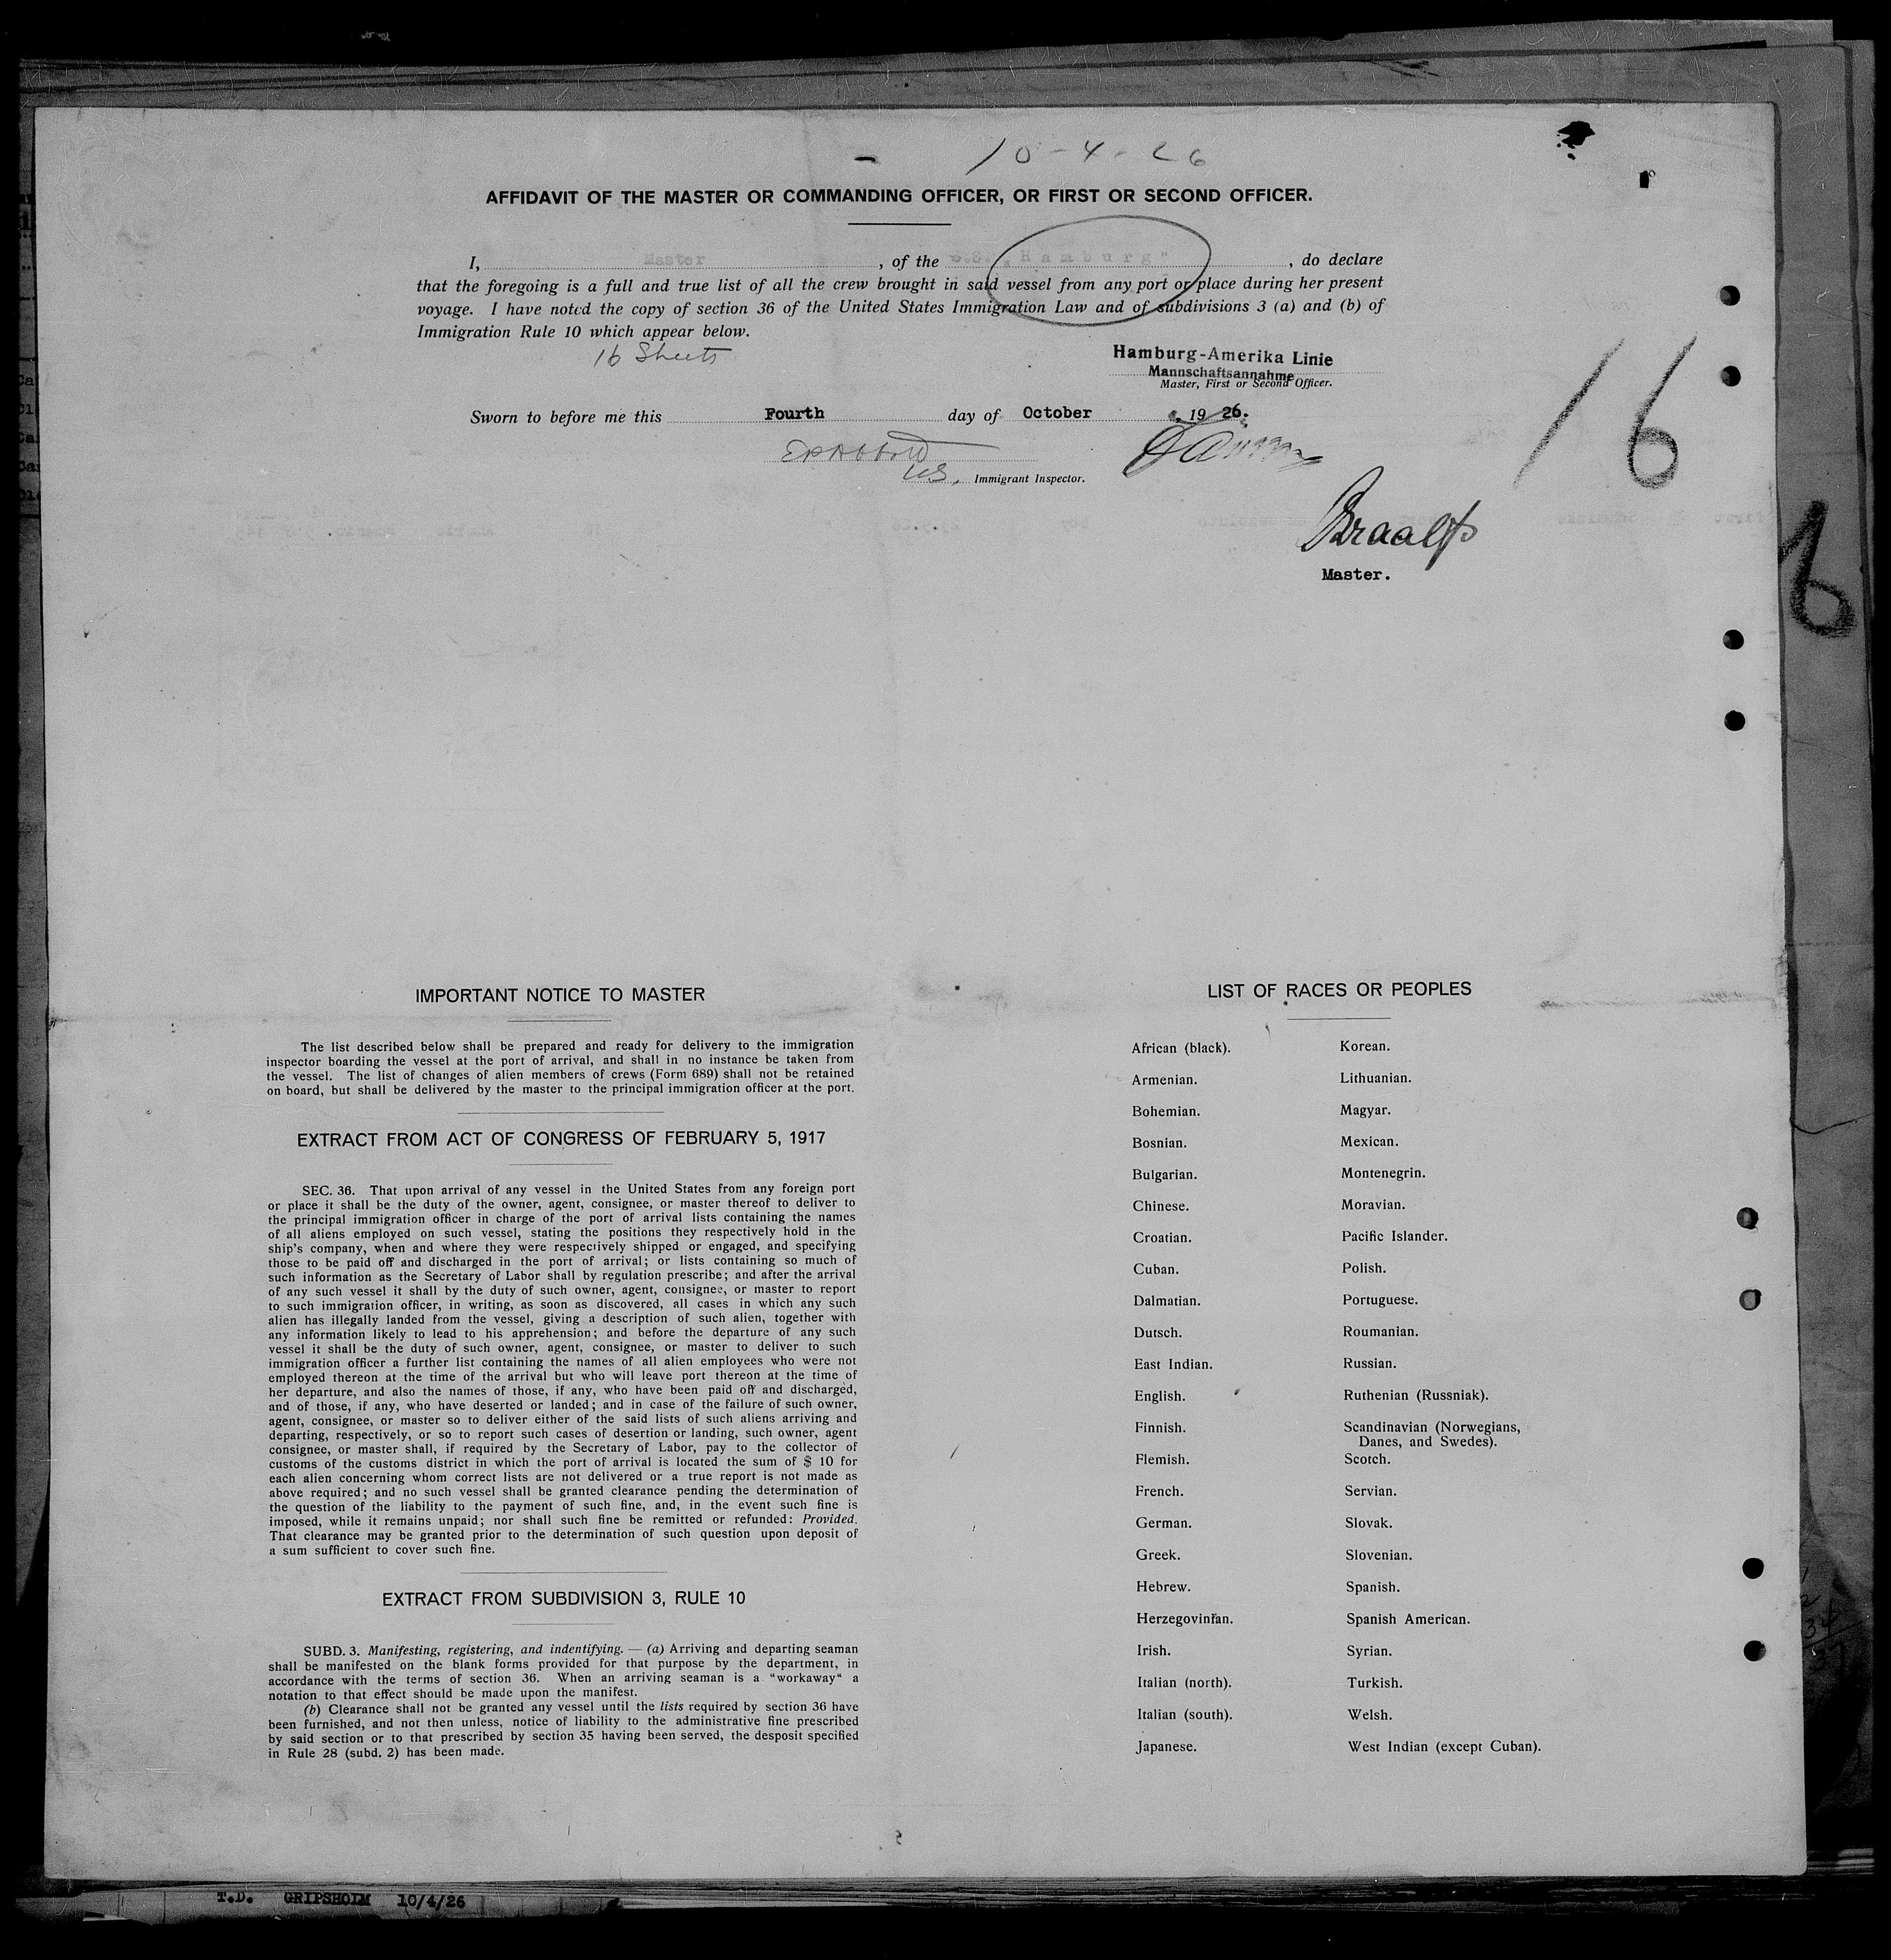 10-4-26
AFFIDAVIT OF THE MASTER OR COMMANDING OFFICER, OR FIRST OR SECOND OFFICER.
I, Master, of the S.S. „Hamburg", do declare
that the foregoing is a full and true list of all the crew brought in said vessel from any port or place during her present
voyage. I have noted the copy of section 36 of the United States Immigration Law and of subdivisions 3 (a) and (b) of
Immigration Rule 10 which appear below.
16 Sheets
Hamburg-Amerika Linie
Mannschaftsannahme
Master, First or Second Officer.
16
Sworn to before me this Fourth day of October, 1926.
US. Immigrant Inspector.
Master.
6
IMPORTANT NOTICE TO MASTER
The list described below shall be prepared and ready for delivery to the immigration
inspector boarding the vessel at the port of arrival, and shall in no instance be taken from
the vessel. The list of changes of alien members of crews (Form 689) shall not be retained
on board, but shall be delivered by the master to the principal immigration officer at the port.
EXTRACT FROM ACT OF CONGRESS OF FEBRUARY 5, 1917
SEC. 36. That upon arrival of any vessel in the United States from any foreign port
or place it shall be the duty of the owner, agent, consignee, or master thereof to deliver to
the principal immigration officer in charge of the port of arrival lists containing the names
of all aliens employed on such vessel, stating the positions they respectively hold in the
ship's company, when and where they were respectively shipped or engaged, and specifying
those to be paid off and discharged in the port of arrival; or lists containing so much of
such information as the Secretary of Labor shall by regulation prescribe; and after the arrival
of any such vessel it shall by the duty of such owner, agent, consignee, or master to report
to such immigration officer, in writing, as soon as discovered, all cases in which any such
alien has illegally landed from the vessel, giving a description of such alien, together with
any information likely to lead to his apprehension; and before the departure of any such
vessel it shall be the duty of such owner, agent, consignee, or master to deliver to such
immigration officer a further list containing the names of all alien employees who were not
employed thereon at the time of the arrival but who will leave port thereon at the time of
her departure, and also the names of those, if any, who have been paid off and discharged,
and of those, if any, who have deserted or landed; and in case of the failure of such owner,
agent, consignee, or master so to deliver either of the said lists of such aliens arriving and
departing, respectively, or so to report such cases of desertion or landing, such owner, agent
consignee, or master shall, if required by the Secretary of Labor, pay to the collector of
customs of the customs district in which the port of arrival is located the sum of $ 10 for
each alien concerning whom correct lists are not delivered or a true report is not made as
above required; and no such vessel shall be granted clearance pending the determination of
the question of the liability to the payment of such fine, and, in the event such fine is
imposed, while it remains unpaid; nor shall such fine be remitted or refunded: Provided.
That clearance may be granted prior to the determination of such question upon deposit of
a sum sufficient to cover such fine.
EXTRACT FROM SUBDIVISION 3, RULE 10
SUBD. 3. Manifesting, registering, and indentifying. — (a) Arriving and departing seaman
shall be manifested on the blank forms provided for that purpose by the department, in
accordance with the terms of section 36. When an arriving seaman is a "workaway" a
notation to that effect should be made upon the manifest.
(b) Clearance shall not be granted any vessel until the lists required by section 36 have
been furnished, and not then unless, notice of liability to the administrative fine prescribed
by said section or to that prescribed by section 35 having been served, the desposit specified
in Rule 28 (subd. 2) has been made.
LIST OF RACES OR PEOPLES
African (black).
Armenian.
Bohemian.
Bosnian.
Bulgarian.
Chinese.
Croatian.
Cuban.
Dalmatian.
Dutsch.
East Indian.
English.
Finnish.
Flemish.
French.
German.
Greek.
Hebrew.
Herzegovinian.
Irish.
Italian (north).
Italian (south).
Japanese.
Korean.
Lithuanian.
Magyar.
Mexican.
Montenegrin.
Moravian.
Pacific Islander.
Polish.
Portuguese.
Roumanian.
Russian.
Ruthenian (Russniak).
Scandinavian (Norwegians,
Danes, and Swedes).
Scotch.
Servian.
Slovak.
Slovenian.
Spanish.
Spanish American.
Syrian.
Turkish.
Welsh.
West Indian (except Cuban).
T.D. GRIPSHOLM 10/4/26